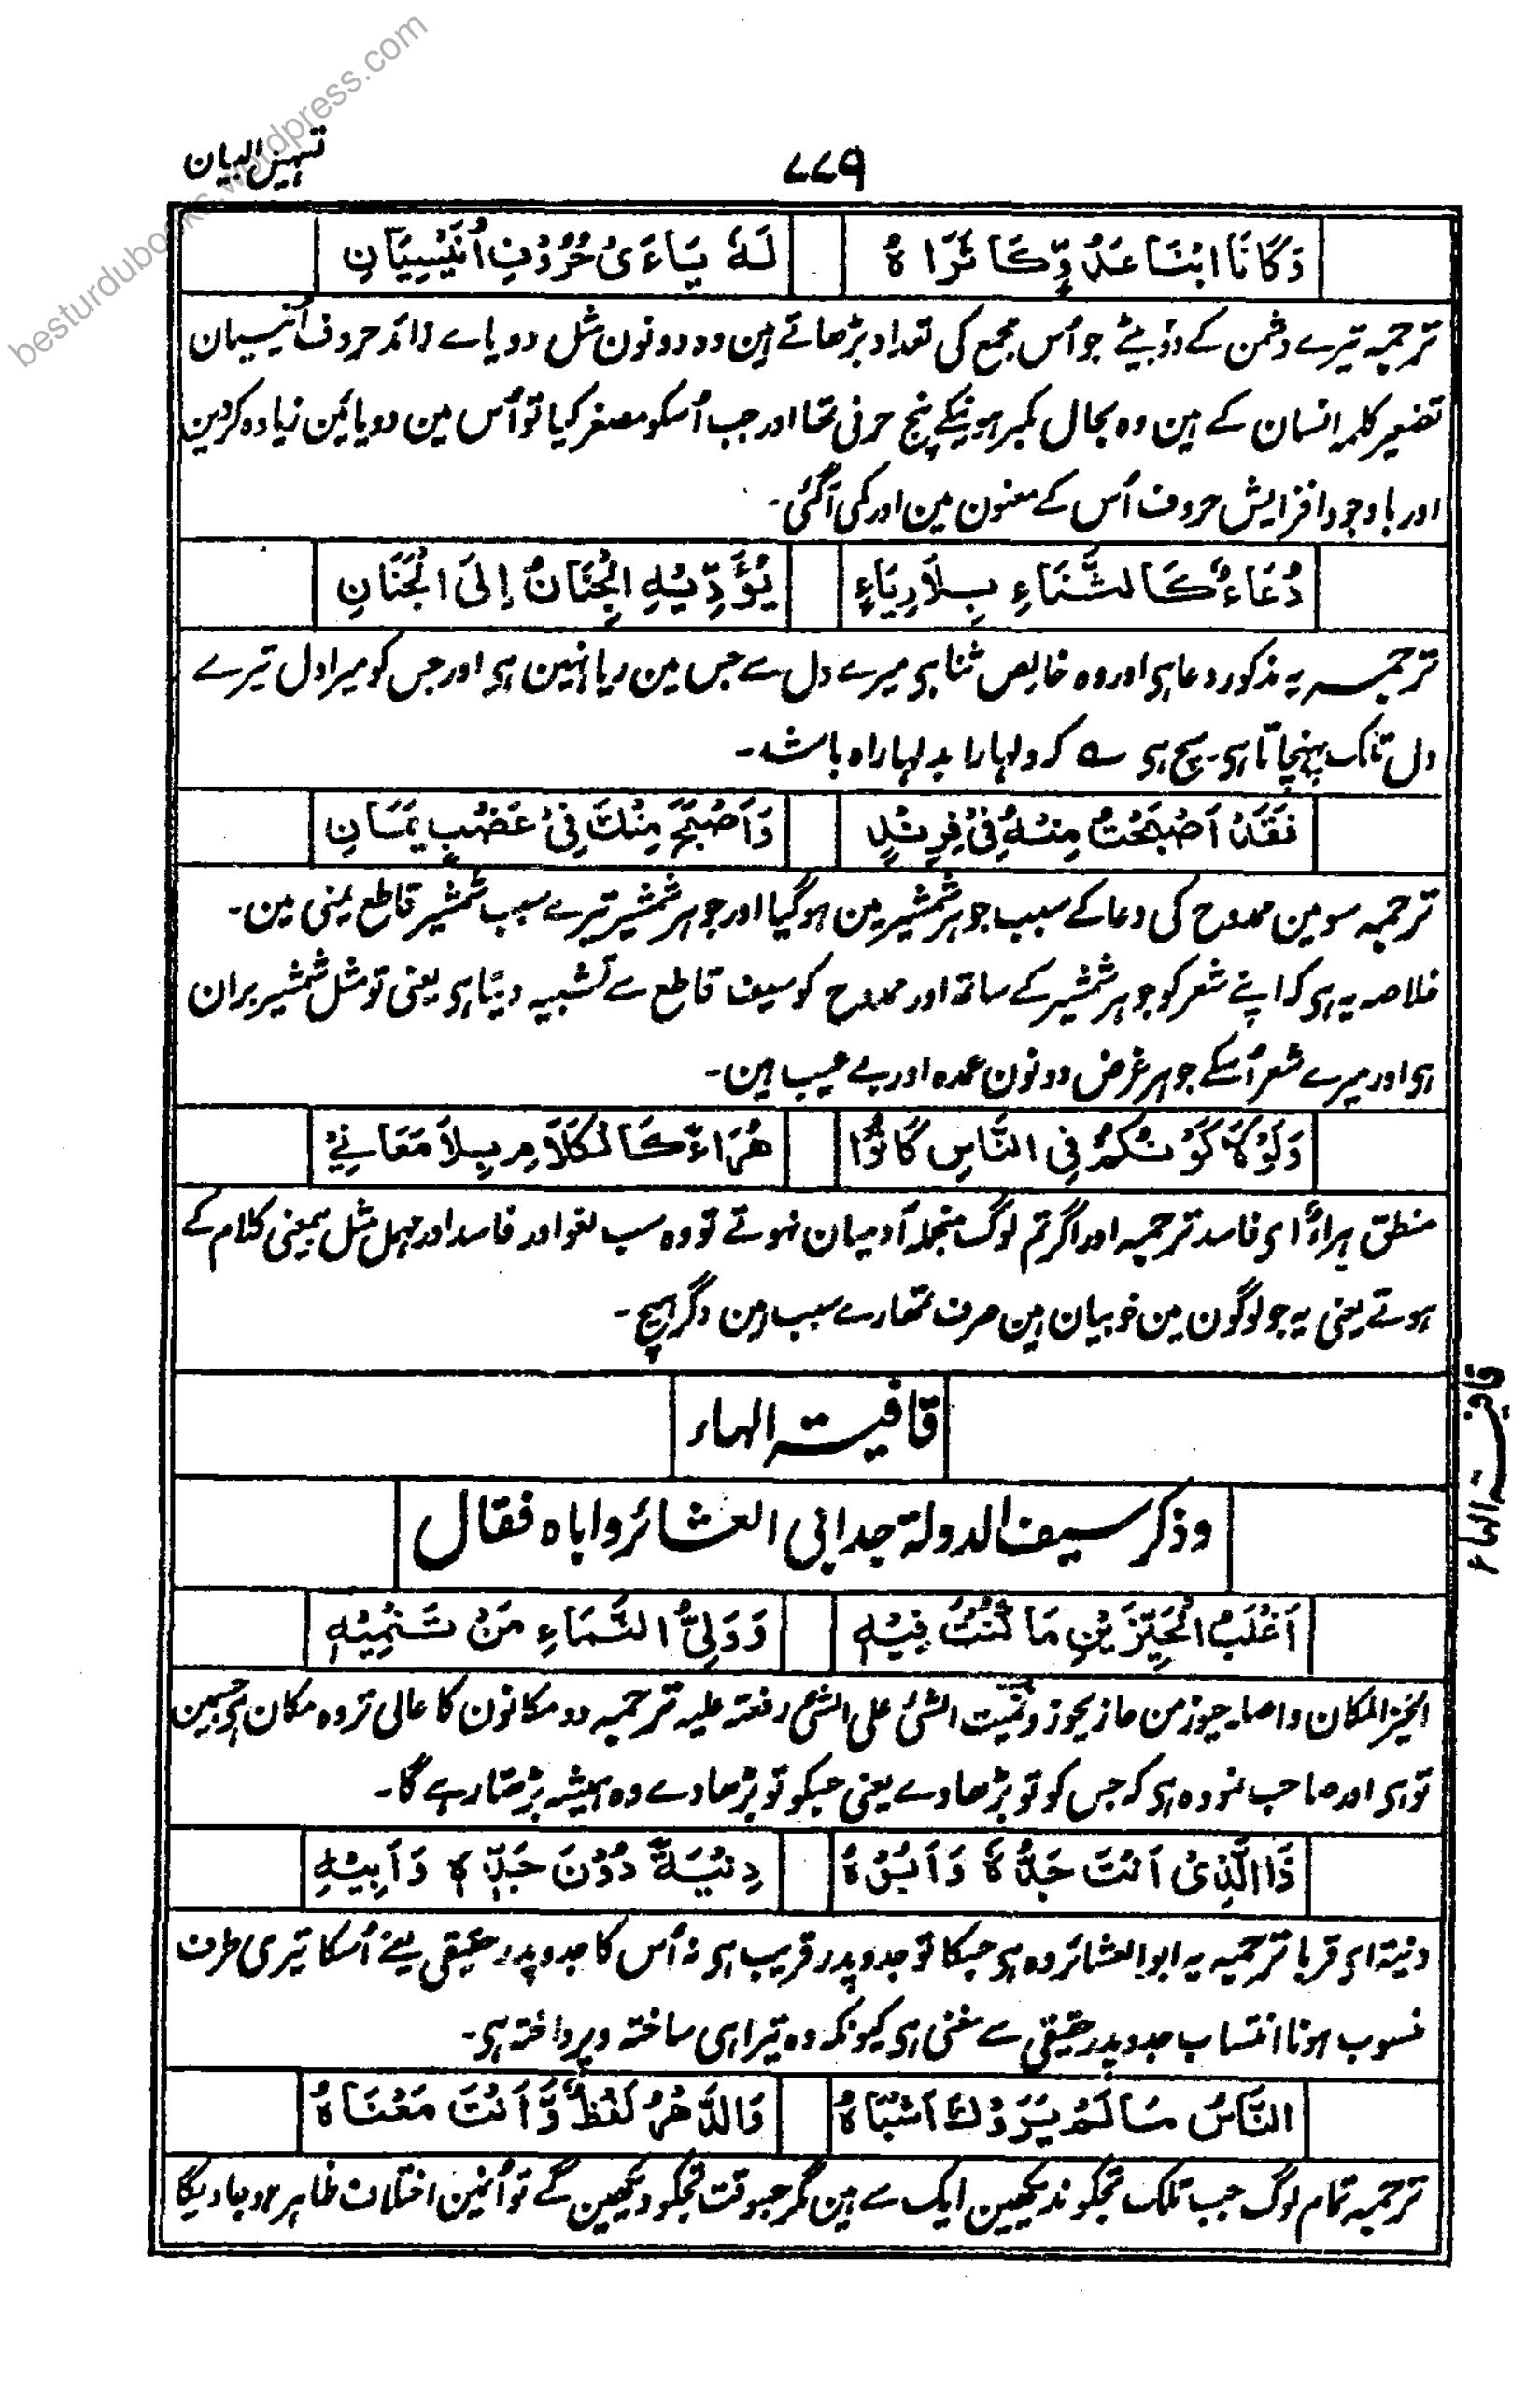 besturdubooks.wordpress.com
تسہیل البیان
۷۷۹
وَكَانَا ابْنَا عَدُوٍّ كَاثَرَاهُ لَهُ يَاءَىْ حُرُوْفِ اُنَيْسِيَانِ
ترجمہ تیرے دشمن کے دو بیٹے جو اُس مجمع کی تعداد بڑھاتے ہین وہ دونون مثل دو یاے زائد حروف اُنیسیان
تصغیر کلمہ انسان کے ہین وہ بحال مکبر ہونیکے پنج حرفی تھا اور جب اُسکو مصغر کیا تو اُس مین دو یائین زیادہ کردین
اور باوجود افزایش حروف اُس کے معنون مین اور کمی آگئی۔
دُعَاءٌ كَالثَّنَاءِ بِلَا رِيَاءٍ يُؤَدِّيْهِ الْجَنَانُ اِلَى الْجَنَانِ
ترجمہ یہ مذکور دعا ہی اور وہ خالص ثنا ہی میرے دل سے جس مین ریا نہین ہی اور جس کو میرا دل تیرے
دل تلک پہنچاتا ہی۔ سچ ہی ؎ کہ دلہارا بدلہا راہ باشد۔
فَقَدْ اَصْبَحْتُ مِنْهُ فِىْ فِرِنْدٍ وَاَصْبَحَ مِنْكَ فِىْ عَضْبٍ يَمَانِ
ترجمہ سو مین ممدوح کی دعا کے سبب جوہر شمشیر مین ہوگیا اور جوہر شمشیر تیرے سبب شمشیر قاطع یمنی مین۔
خلاصہ یہ ہی کہ اپنے شعر کو جوہر شمشیر کے ساتھ اور ممدوح کو سیف قاطع سے تشبیہ دیتا ہی یعنی تو مثل شمشیر بران
ہی اور میرے شعر اُسکے جوہر غرض دونون عمدہ اور بے عیب ہین۔
وَلَوْلَا كَوْنُكُمْ فِى النَّاسِ كَانُوْا هُرَاءً كَالْكَلَامِ بِلَا مَعَانِىْ
منطق ہراءٌ ای فاسد ترجمہ اور اگر تم لوگ منجملہ آدمیان نہوتے تو وہ سب لغو اور فاسد اور مہمل مثل بیمعنی کلام کے
ہوتے یعنی یہ جو لوگون مین خوبیان ہین صرف تمھارے سبب ہین وگر ہیچ۔
قافیۃ الہاء
قافیۃ الہاء
وذکر سیف الدولۃ جد ابی العشائر واباہ فقال
اَغْلَبُ الْحَيِّزَيْنِ مَا كُنْتَ فِيْهِ وَوَلِىُّ النَّمَاءِ مَنْ تَنْمِيْهِ
الحیز المکان واصلہ حیوز من حاز یحوز ونمیت الشئ علی الشئ رفعتہ علیہ ترجمہ دو مکانون کا عالی تر وہ مکان ہی جسمین
تو ہی اور صاحب نمو وہ ہی کہ جس کو تو بڑھا دے یعنی جسکو تو بڑھا دے وہ ہمیشہ بڑھتا رہے گا۔
ذَا الَّذِىْ اَنْتَ جَدُّهُ وَاَبُوْهُ دِنْيَةً دُوْنَ جَدِّهِ وَاَبِيْهِ
دنیۃ ای قربا ترجمہ یہ ابوالعشائر وہ ہی جسکا تو جد و پدر قریب ہی نہ اُس کا جد و پدر حقیقی یعنے اُسکا تیری طرف
منسوب ہونا انتساب جد و پدر حقیقی سے مغنی ہی کیونکہ وہ تیرا ہی ساختہ و پرداختہ ہی۔
النَّاسُ مَا لَمْ يَرَوْكَ اَشْبَاهُ وَالدَّهْرُ لَفْظٌ وَّاَنْتَ مَعْنَاهُ
ترجمہ تمام لوگ جب تلک تجکو ندیکھین ایک سے ہین مگر جسوقت تجکو دیکھین گے تو اُنمین اختلاف ظاہر ہو جاویگا